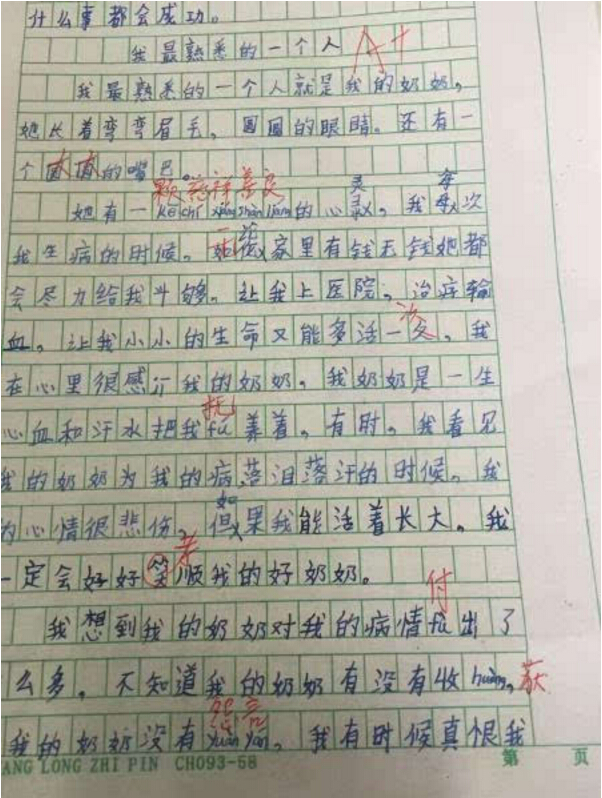 什么事都会成功。
我最熟悉的一个人 A+
我最熟悉的一个人就是我的奶奶，
她长着弯弯眉毛，圆圆的眼睛。还有一
个圆圆的嘴巴。
颗 慈祥善良 灵 每
她有一kē chí xiáng shàn liáng的心，我每次
我生病的时候。她花家里有钱无钱她都
会尽力给我斗够。让我上医院，治疗输
血，让我小小的生命又能多活一次，我
在心里很感介我的奶奶，我奶奶是一生
抚
心血和汗水把我fǔ养着，有时。我看见
我的奶奶为我的病落泪落汗的时候，我
如
为心情很悲伤，但果我能活着长大。我
孝
一定会好好笑顺我的好奶奶。
付
我想到我的奶奶对我的病情fù出了
么多，不知道我的奶奶有没有收huò，获
怨言
我的奶奶没有yuàn yán，我有时候真恨我
ANG LONG ZHI PIN CH093-58 第 页